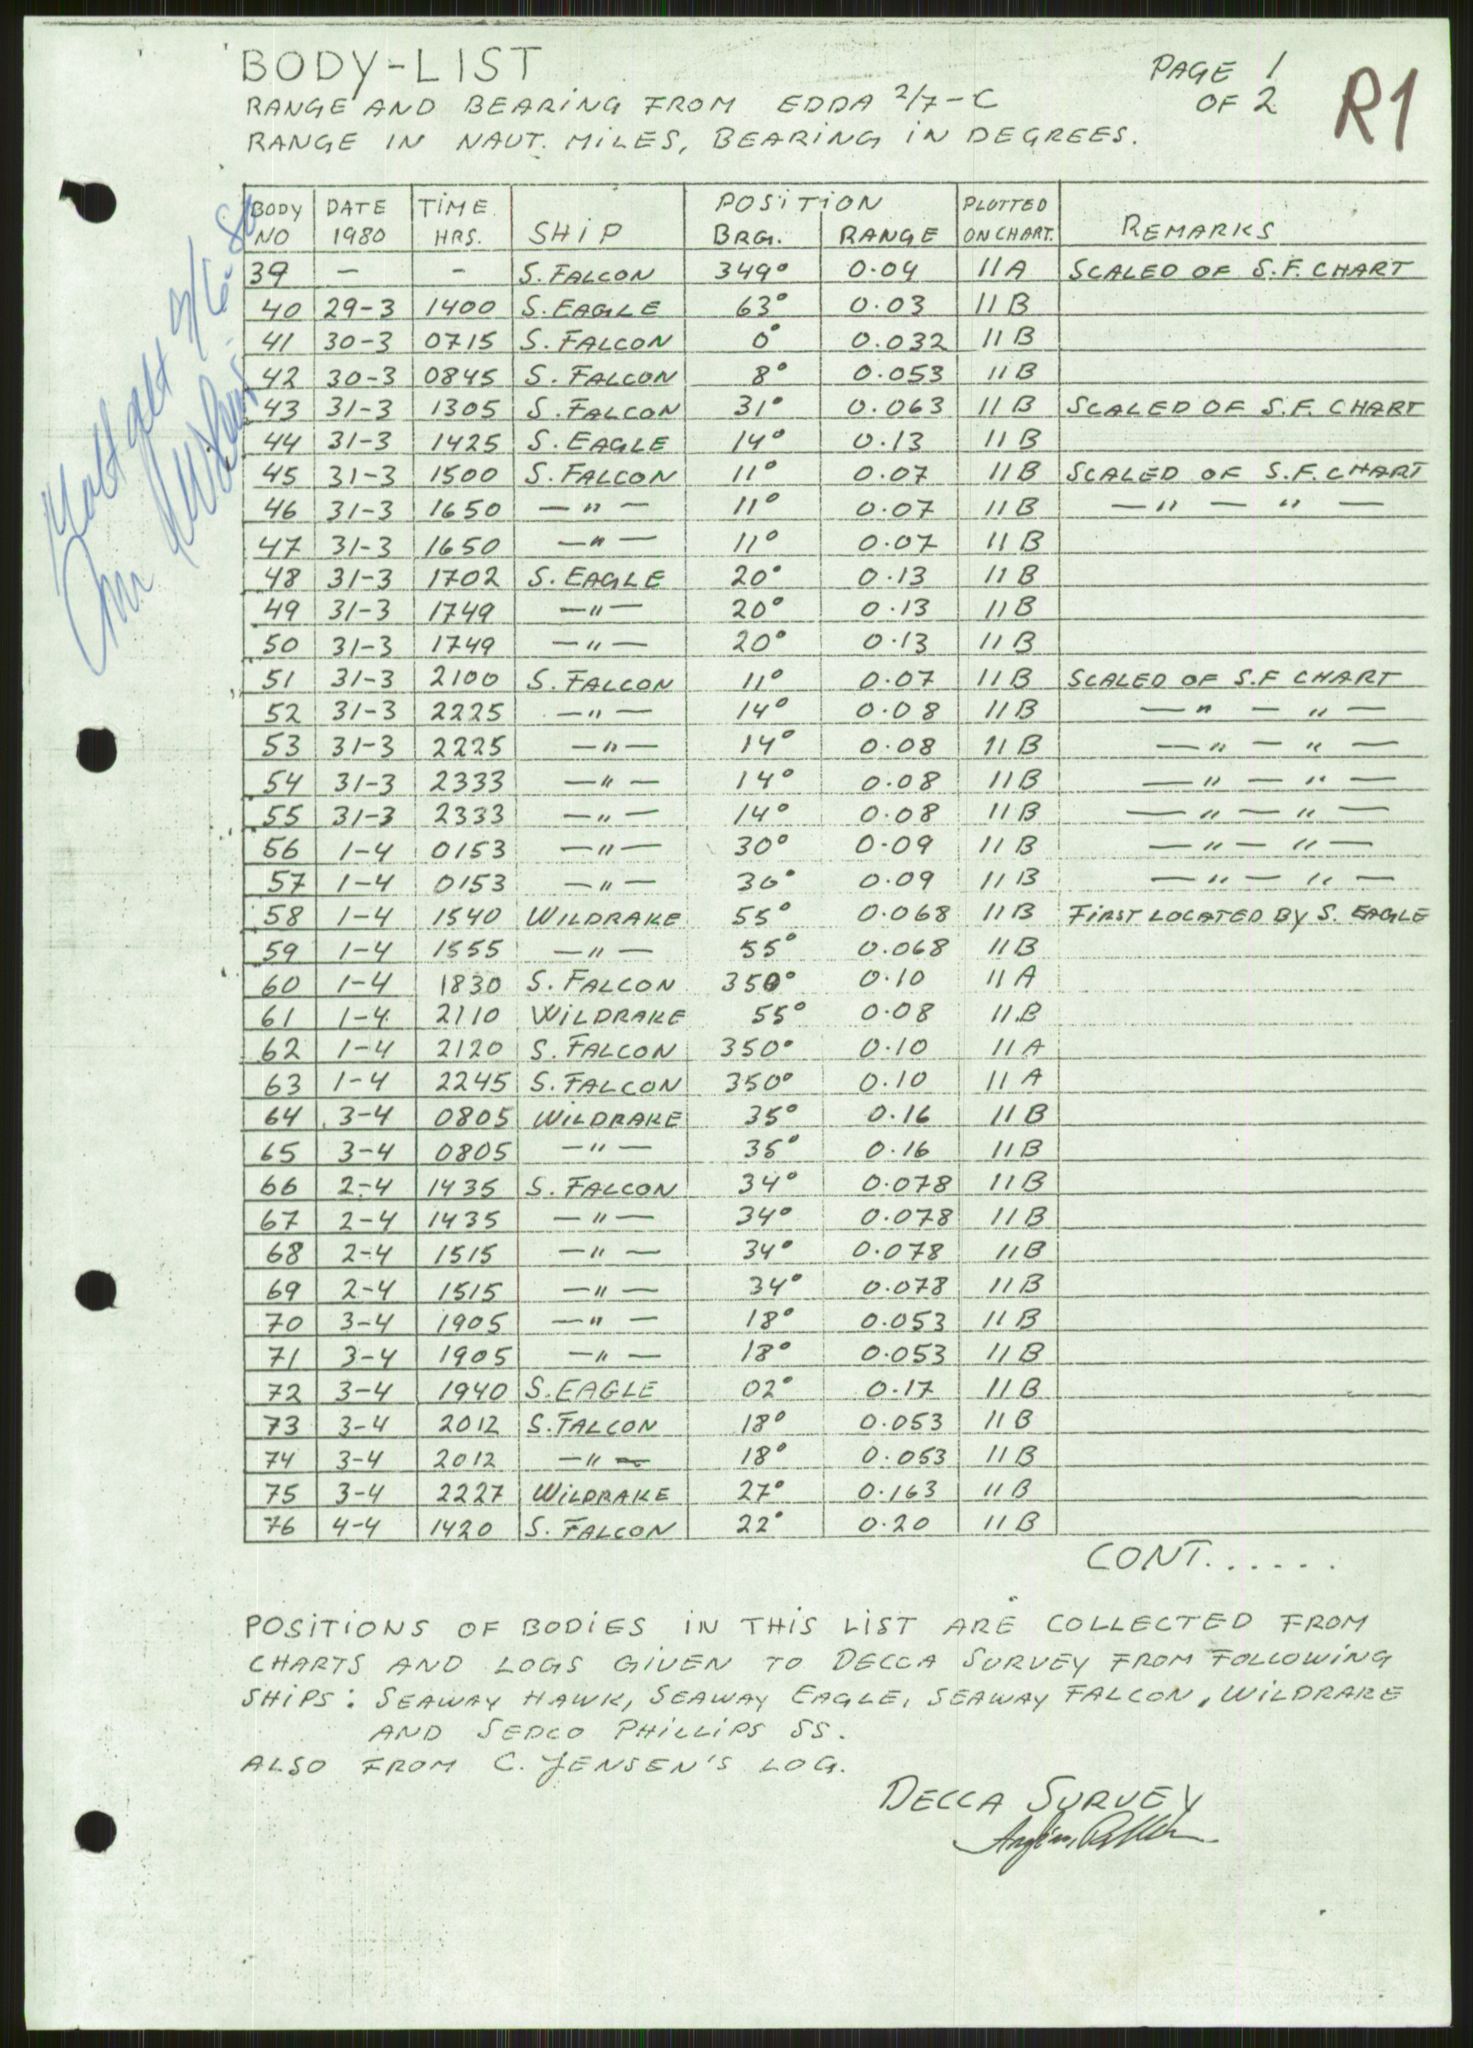 BODY-LIST
RANGE AND BEARING FROM EDDA 2/7-C
RANGE IN NAUT. MILES, BEARING IN DEGREES.
PAGE 1
OF 2
R1
BODY NO | DATE 1980 | TIME HRS. | SHIP | POSITION BRG. | RANGE | PLOTTED ON CHART. | REMARKS
39 | — | — | S. FALCON | 349° | 0.04 | 11A | SCALED OF S.F. CHART
40 | 29-3 | 1400 | S. EAGLE | 63° | 0.03 | 11B
41 | 30-3 | 0715 | S. FALCON | 0° | 0.032 | 11B
42 | 30-3 | 0845 | S. FALCON | 8° | 0.053 | 11B
43 | 31-3 | 1305 | S. FALCON | 31° | 0.063 | 11B | SCALED OF S.F. CHART
44 | 31-3 | 1425 | S. EAGLE | 14° | 0.13 | 11B
45 | 31-3 | 1500 | S. FALCON | 11° | 0.07 | 11B | SCALED OF S.F. CHART
46 | 31-3 | 1650 | — " — | 11° | 0.07 | 11B | — " — " —
47 | 31-3 | 1650 | — " — | 11° | 0.07 | 11B
48 | 31-3 | 1702 | S. EAGLE | 20° | 0.13 | 11B
49 | 31-3 | 1749 | — " — | 20° | 0.13 | 11B
50 | 31-3 | 1749 | — " — | 20° | 0.13 | 11B
51 | 31-3 | 2100 | S. FALCON | 11° | 0.07 | 11B | SCALED OF S.F CHART
52 | 31-3 | 2225 | — " — | 14° | 0.08 | 11B | — " — " —
53 | 31-3 | 2225 | — " — | 14° | 0.08 | 11B | — " — " —
54 | 31-3 | 2333 | — " — | 14° | 0.08 | 11B | — " — " —
55 | 31-3 | 2333 | — " — | 14° | 0.08 | 11B | — " — " —
56 | 1-4 | 0153 | — " — | 30° | 0.09 | 11B | — " — " —
57 | 1-4 | 0153 | — " — | 30° | 0.09 | 11B | — " — " —
58 | 1-4 | 1540 | WILDRAKE | 55° | 0.068 | 11B | FIRST LOCATED BY S. EAGLE
59 | 1-4 | 1555 | — " — | 55° | 0.068 | 11B
60 | 1-4 | 1830 | S. FALCON | 350° | 0.10 | 11A
61 | 1-4 | 2110 | WILDRAKE | 55° | 0.08 | 11B
62 | 1-4 | 2120 | S. FALCON | 350° | 0.10 | 11A
63 | 1-4 | 2245 | S. FALCON | 350° | 0.10 | 11A
64 | 3-4 | 0805 | WILDRAKE | 35° | 0.16 | 11B
65 | 3-4 | 0805 | — " — | 35° | 0.16 | 11B
66 | 2-4 | 1435 | S. FALCON | 34° | 0.078 | 11B
67 | 2-4 | 1435 | — " — | 34° | 0.078 | 11B
68 | 2-4 | 1515 | — " — | 34° | 0.078 | 11B
69 | 2-4 | 1515 | — " — | 34° | 0.078 | 11B
70 | 3-4 | 1905 | — " — | 18° | 0.053 | 11B
71 | 3-4 | 1905 | — " — | 18° | 0.053 | 11B
72 | 3-4 | 1940 | S. EAGLE | 02° | 0.17 | 11B
73 | 3-4 | 2012 | S. FALCON | 18° | 0.053 | 11B
74 | 3-4 | 2012 | — " — | 18° | 0.053 | 11B
75 | 3-4 | 2227 | WILDRAKE | 27° | 0.163 | 11B
76 | 4-4 | 1420 | S. FALCON | 22° | 0.20 | 11B
CONT......
POSITIONS OF BODIES IN THIS LIST ARE COLLECTED FROM
CHARTS AND LOGS GIVEN TO DECCA SURVEY FROM FOLLOWING
SHIPS: SEAWAY HAWK, SEAWAY EAGLE, SEAWAY FALCON, WILDRAKE
AND SEDCO PHILLIPS SS.
ALSO FROM C. JENSEN'S LOG.
DECCA SURVEY